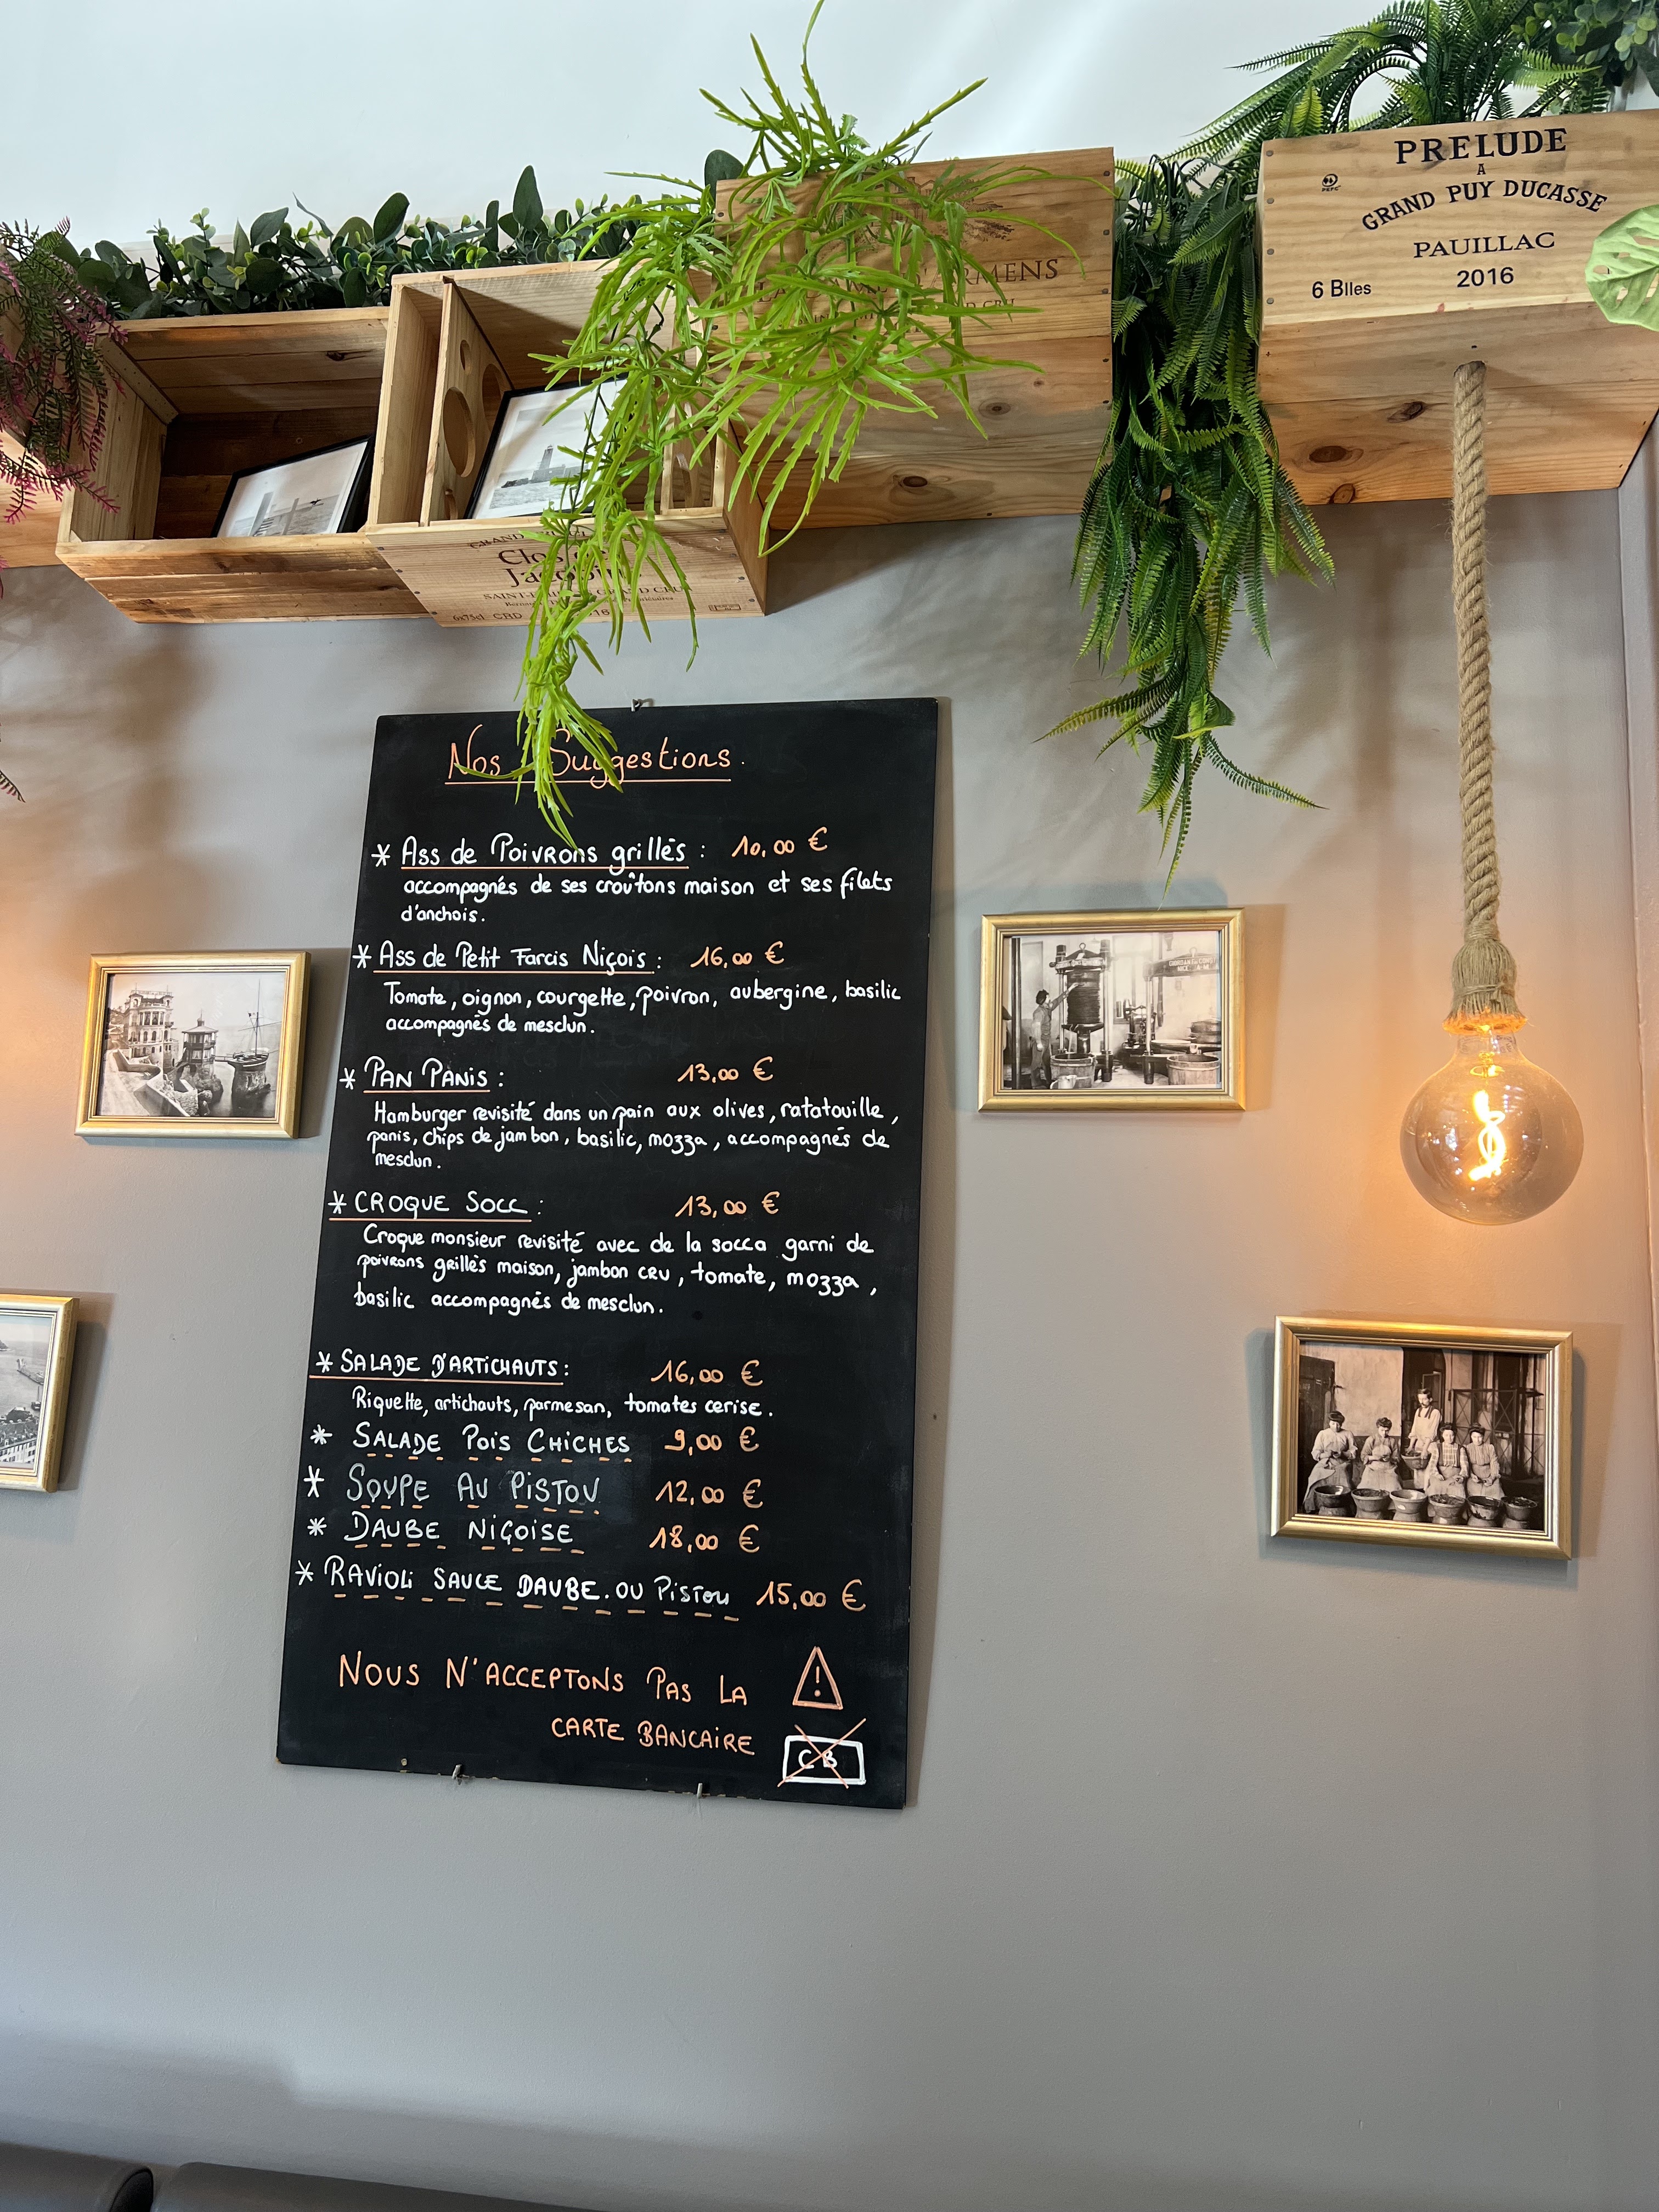 PRELUDE
A
GRAND PUY DUCASSE
PAUILLAC
2016
6 Blles
PEFC
GRAND
SAINT- GRAND CRU
6x75cl CBD
Nos Suggestions.
* Ass de Poivrons grillés : 10,00 €
accompagnés de ses croûtons maison et ses filets
d'anchois.
* Ass de Petit Farcis Niçois : 16,00 €
Tomate, oignon, courgette, poivron, aubergine, basilic
accompagnés de mesclun.
* PAN PANIS : 13,00 €
Hamburger revisité dans un pain aux olives, ratatouille,
panis, chips de jambon, basilic, mozza, accompagnés de
mesclun.
* CROQUE SOCC : 13,00 €
Croque monsieur revisité avec de la socca garni de
poivrons grillés maison, jambon cru, tomate, mozza,
basilic accompagnés de mesclun.
* SALADE D'ARTICHAUTS : 16,00 €
Riquette, artichauts, parmesan, tomates cerise.
* SALADE POIS CHICHES 9,00 €
* SOUPE AU PISTOU 12,00 €
* DAUBE NIÇOISE 18,00 €
* RAVIOLI SAUCE DAUBE. OU PISTOU 15,00 €
NOUS N'ACCEPTONS PAS LA !
CARTE BANCAIRE
CB